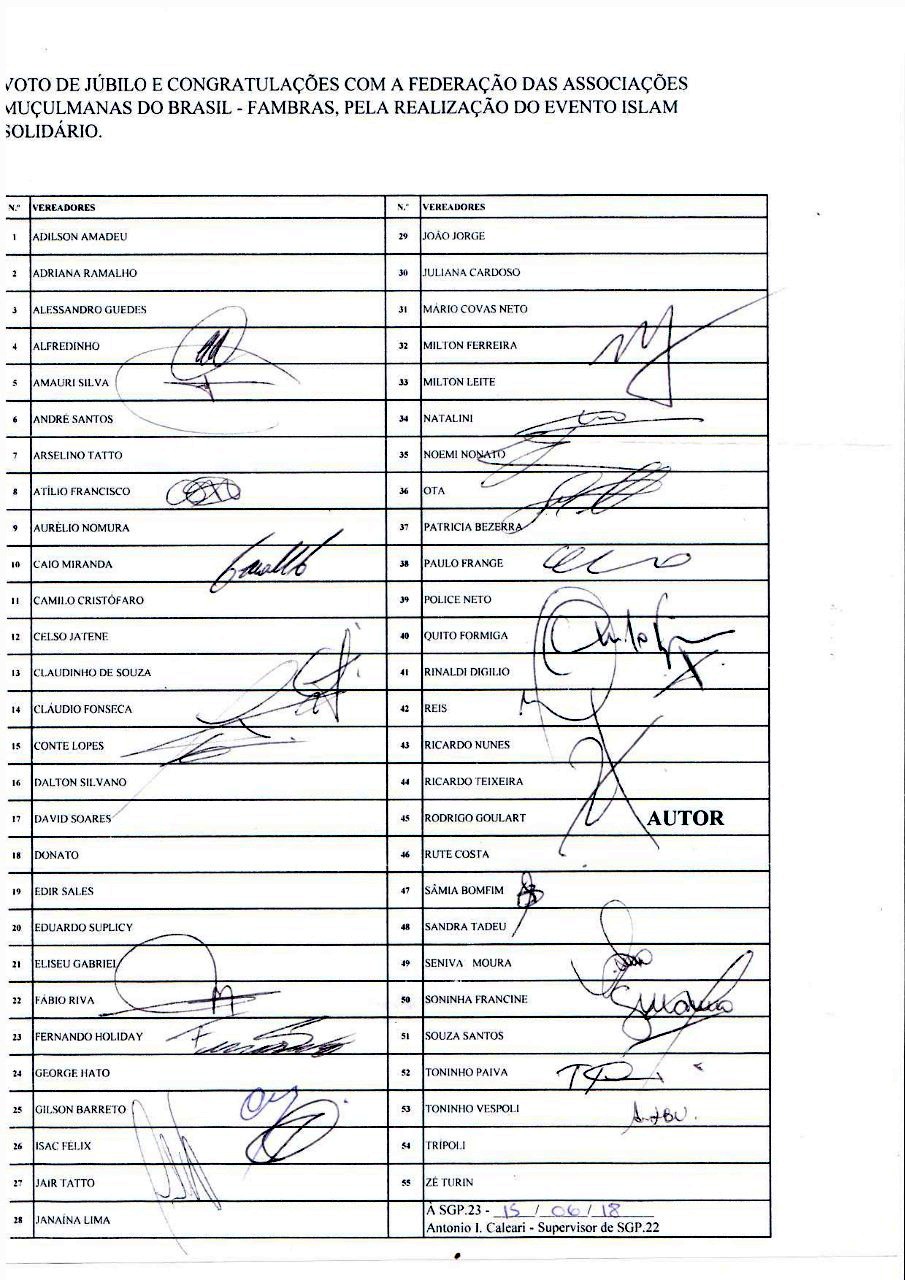 VOTO DE JÚBILO E CONGRATULAÇÕES COM A FEDERAÇÃO DAS ASSOCIAÇÕES
MUÇULMANAS DO BRASIL - FAMBRAS, PELA REALIZAÇÃO DO EVENTO ISLAM
SOLIDÁRIO.
N.º VEREADORES N.º VEREADORES
1 ADILSON AMADEU 29 JOÃO JORGE
2 ADRIANA RAMALHO 30 JULIANA CARDOSO
3 ALESSANDRO GUEDES 31 MÁRIO COVAS NETO
4 ALFREDINHO 32 MILTON FERREIRA
5 AMAURI SILVA 33 MILTON LEITE
6 ANDRÉ SANTOS 34 NATALINI
7 ARSELINO TATTO 35 NOEMI NONATO
8 ATÍLIO FRANCISCO 36 OTA
9 AURÉLIO NOMURA 37 PATRICIA BEZERRA
10 CAIO MIRANDA 38 PAULO FRANGE
11 CAMILO CRISTÓFARO 39 POLICE NETO
12 CELSO JATENE 40 QUITO FORMIGA
13 CLAUDINHO DE SOUZA 41 RINALDI DIGILIO
14 CLÁUDIO FONSECA 42 REIS
15 CONTE LOPES 43 RICARDO NUNES
16 DALTON SILVANO 44 RICARDO TEIXEIRA
17 DAVID SOARES 45 RODRIGO GOULART AUTOR
18 DONATO 46 RUTE COSTA
19 EDIR SALES 47 SÂMIA BOMFIM
20 EDUARDO SUPLICY 48 SANDRA TADEU
21 ELISEU GABRIEL 49 SENIVA MOURA
22 FÁBIO RIVA 50 SONINHA FRANCINE
23 FERNANDO HOLIDAY 51 SOUZA SANTOS
24 GEORGE HATO 52 TONINHO PAIVA
25 GILSON BARRETO 53 TONINHO VESPOLI
26 ISAC FELIX 54 TRIPOLI
27 JAIR TATTO 55 ZÉ TURIN
28 JANAÍNA LIMA À SGP.23 - 15 / 06 / 18
Antonio I. Caleari - Supervisor de SGP.22